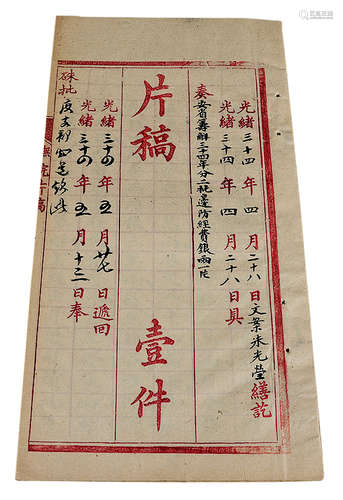 光緒三十四年四月二十八日文案朱光瑩繕訖
光緒三十四年四月二十八日具
奏安省籌解三十四年分二批邊防經費銀兩一片
片稿 壹件
光緒三十四年五月廿七日遞回
光緒三十四年五月十三日奉
硃批度支部知道欽此